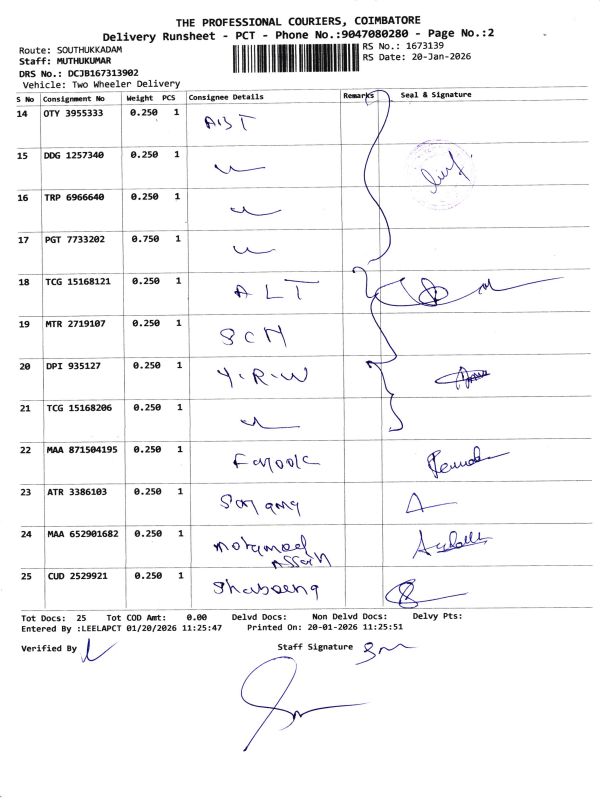 THE PROFESSIONAL COURIERS, COIMBATORE
Delivery Runsheet - PCT - Phone No.:9047080280 - Page No.:2
Route: SOUTHUKKADAM
RS No.: 1673139
Staff: MUTHUKUMAR
RS Date: 20-Jan-2026
DRS No.: DCJB167313902
Vehicle: Two Wheeler Delivery
S No Consignment No Weight PCS Consignee Details Remarks Seal & Signature
14 OTY 3955333 0.250 1 ABT
15 DDG 1257340 0.250 1
16 TRP 6966640 0.250 1
17 PGT 7733202 0.750 1
18 TCG 15168121 0.250 1 ALT
19 MTR 2719107 0.250 1 SCM
20 DPI 935127 0.250 1 Y.R.W
21 TCG 15168206 0.250 1
22 MAA 871504195 0.250 1
23 ATR 3386103 0.250 1
24 MAA 652901682 0.250 1
25 CUD 2529921 0.250 1
Tot Docs: 25 Tot COD Amt: 0.00 Delvd Docs: Non Delvd Docs: Delvy Pts:
Entered By :LEELAPCT 01/20/2026 11:25:47 Printed On: 20-01-2026 11:25:51
Verified By Staff Signature